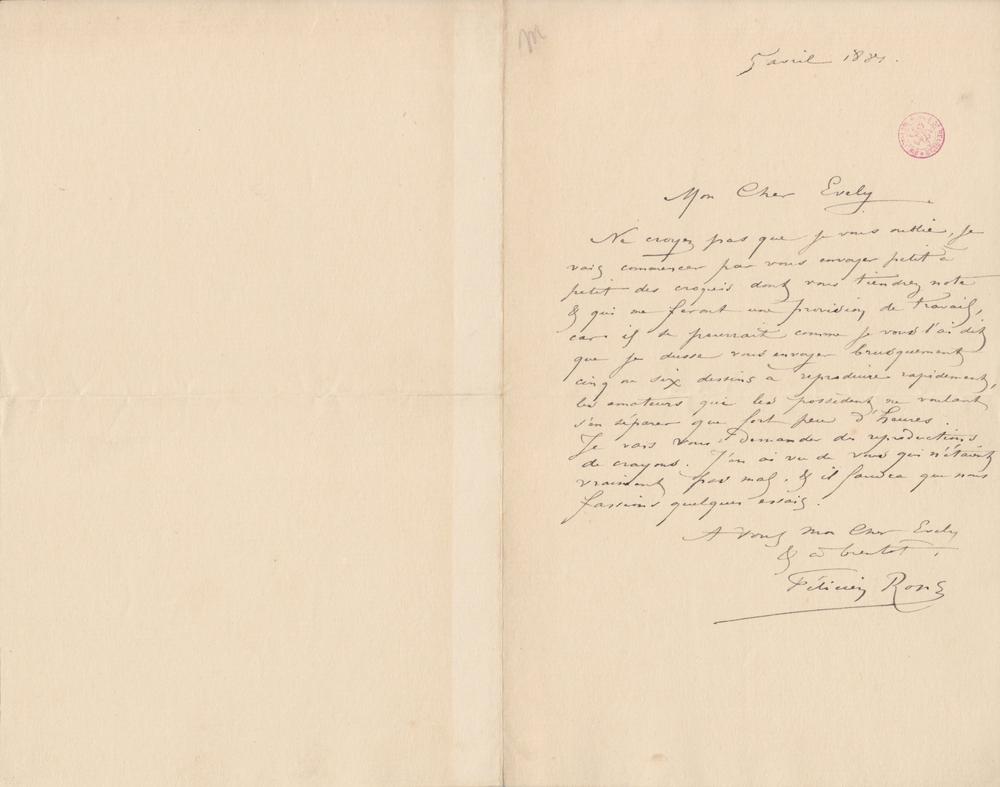 M
5 avril 1881.
Mon Cher Evely
Ne croyez pas que je vous oublie, je
vais commencer par vous envoyer petit à
petit des croquis dont vous tiendrez note
& qui me feront une provision de travail,
car il se pourrait comme je vous l'ai dit
que je dusse vous envoyer brusquement
cinq ou six dessins à reproduire rapidement,
les amateurs qui les possèdent ne voulant
s'en séparer que fort peu d'heures.
Je vais vous demander des reproductions
de crayons. J'en ai vu de vous qui n'étaient
vraiment pas mal. & il faudra que nous
fassions quelques essais.
A vous mon Cher Evely
& à bientot,
Félicien Rops